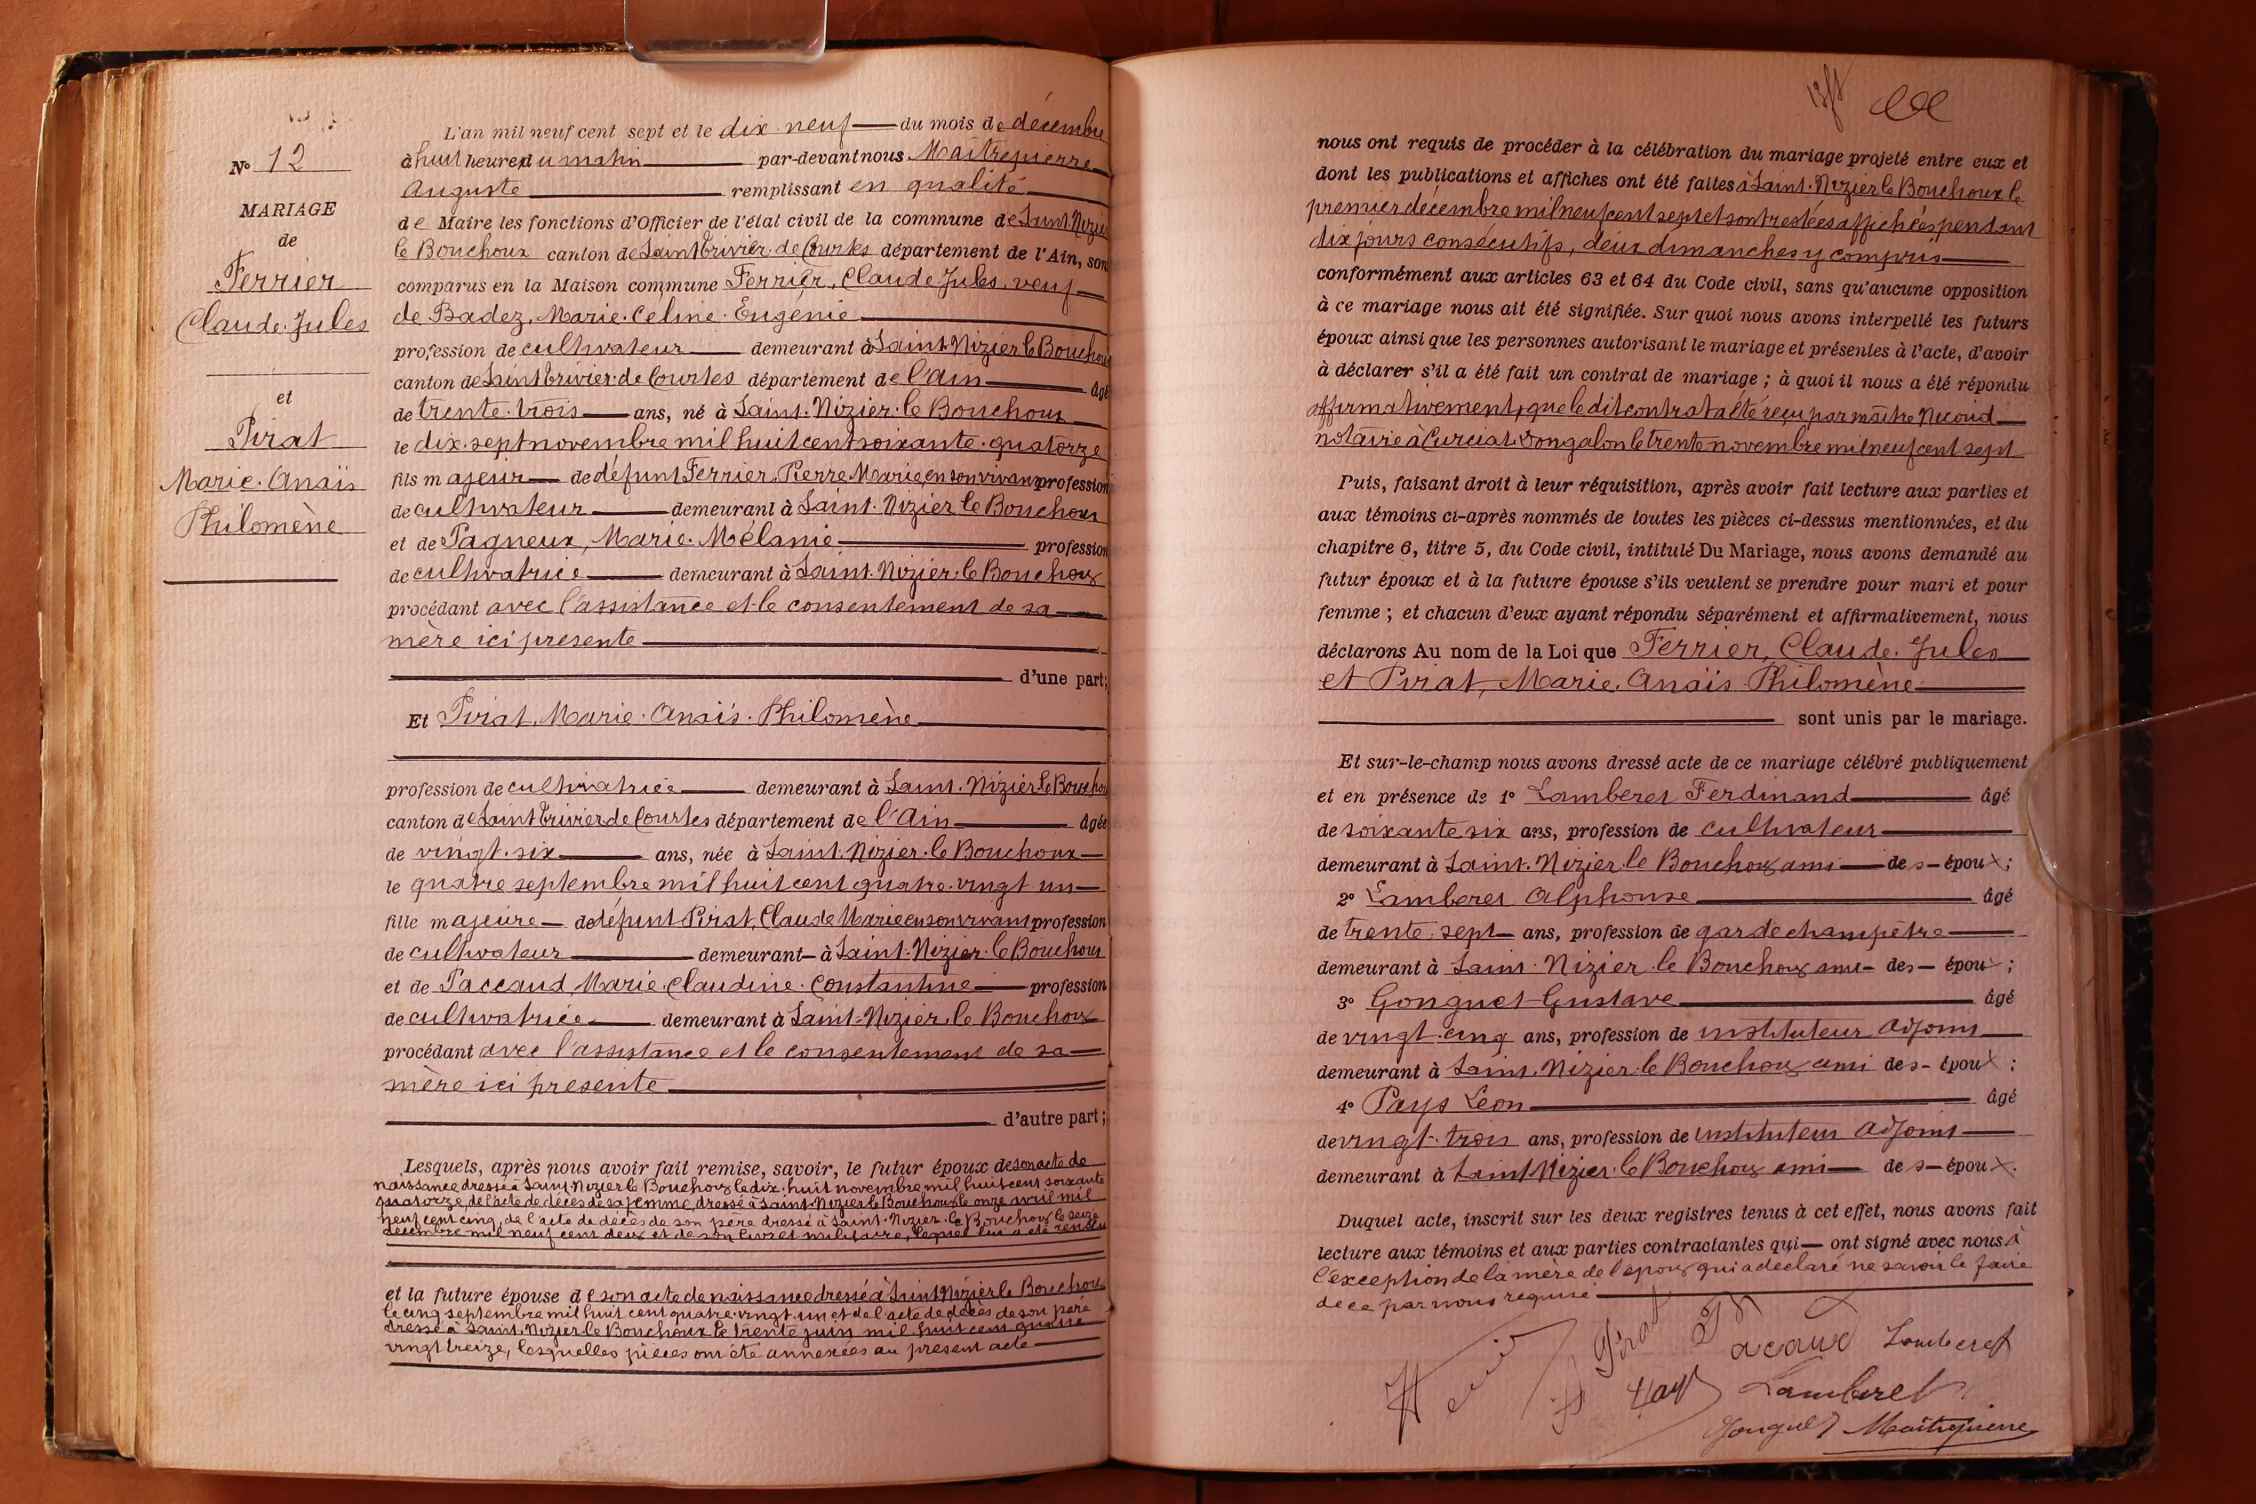 L'an mil neuf cent sept et le dix neuf du mois de décembre
à huit heures du matin par-devant nous Maîtrepierre
Auguste remplissant en qualité
de Maire les fonctions d'Officier de l'état civil de la commune de Saint-Nizier
le Bouchoux canton de Saint Trivier de Courtes département de l'Ain, son
comparus en la Maison commune Ferrier, Claude Jules, veuf
de Badez, Marie Céline Eugénie
profession de cultivateur demeurant à Saint-Nizier le Bouchoux
canton de Saint Trivier de Courtes département de l'Ain âgé
de trente trois ans, né à Saint-Nizier le Bouchoux
le dix-sept novembre mil huit cent soixante-quatorze
fils majeur de défunt Ferrier, Pierre Marie en son vivant profession
de cultivateur demeurant à Saint-Nizier le Bouchoux
et de Pagneux, Marie Mélanie profession
de cultivatrice demeurant à Saint-Nizier le Bouchoux
procédant avec l'assistance et le consentement de sa
mère ici présente
d'une part;
Et Pirat, Marie Anaïs Philomène
profession de cultivatrice demeurant à Saint-Nizier le Bouchou
canton de Saint Trivier de Courtes département de l'Ain âgée
de vingt-six ans, née à Saint-Nizier le Bouchoux
le quatre septembre mil huit cent quatre-vingt un
fille majeure de défunt Pirat, Claude Marie en son vivant profession
de cultivateur demeurant à Saint-Nizier le Bouchoux
et de Paccaud, Marie Claudine Constantine profession
de cultivatrice demeurant à Saint-Nizier le Bouchoux
procédant avec l'assistance et le consentement de sa
mère ici présente
d'autre part;
Lesquels, après nous avoir fait remise, savoir, le futur époux de son acte de
naissance dressé à Saint-Nizier le Bouchoux le dix-huit novembre mil huit cent soixante
quatorze, de l'acte de décès de sa femme, dressé à Saint-Nizier le Bouchoux le onze avril mil
neuf cent cinq, de l'acte de décès de son père dressé à Saint-Nizier le Bouchoux le seize
décembre mil neuf cent deux et de son livret militaire, lequel lui a été rendu
et la future épouse de son acte de naissance dressé à Saint Nizier le Bouchoux
le cinq septembre mil huit cent quatre-vingt un et de l'acte de décès de son père
dressé à Saint-Nizier le Bouchoux le trente juin mil huit cent quatre
vingt treize, lesquelles pièces ont été annexées au présent acte
No 12
MARIAGE
de
Ferrier
Claude Jules
et
Pirat
Marie Anaïs
Philomène
nous ont requis de procéder à la célébration du mariage projeté entre eux et
dont les publications et affiches ont été faites à Saint-Nizier le Bouchoux le
premier décembre mil neuf cent sept et sont restées affichées pendant
dix jours consécutifs, deux dimanches y compris
conformément aux articles 63 et 64 du Code civil, sans qu'aucune opposition
à ce mariage nous ait été signifiée. Sur quoi nous avons interpellé les futurs
époux ainsi que les personnes autorisant le mariage et présentes à l'acte, d'avoir
à déclarer s'il a été fait un contrat de mariage ; à quoi il nous a été répondu
affirmativement, que le dit contrat a été reçu par maître Nicoud
notaire à Curciat Dongalon le trente novembre mil neuf cent sept
Puis, faisant droit à leur réquisition, après avoir fait lecture aux parties et
aux témoins ci-après nommés de toutes les pièces ci-dessus mentionnées, et du
chapitre 6, titre 5, du Code civil, intitulé Du Mariage, nous avons demandé au
futur époux et à la future épouse s'ils veulent se prendre pour mari et pour
femme ; et chacun d'eux ayant répondu séparément et affirmativement, nous
déclarons Au nom de la Loi que Ferrier, Claude Jules
et Pirat, Marie Anaïs Philomène
sont unis par le mariage.
Et sur-le-champ nous avons dressé acte de ce mariage célébré publiquement
et en présence de 1° Lamberet Ferdinand âgé
de soixante six ans, profession de cultivateur
demeurant à Saint-Nizier le Bouchoux ami des époux;
2° Lamberet Alphonse âgé
de trente-sept ans, profession de garde champêtre
demeurant à Saint-Nizier le Bouchoux ami des époux;
3° Gonguet Gustave âgé
de vingt-cinq ans, profession de instituteur adjoint
demeurant à Saint-Nizier le Bouchoux ami des époux;
4° Pays Léon âgé
de vingt-trois ans, profession de instituteur adjoint
demeurant à Saint Nizier le Bouchoux ami des époux.
Duquel acte, inscrit sur les deux registres tenus à cet effet, nous avons fait
lecture aux témoins et aux parties contractantes qui ont signé avec nous à
l'exception de la mère de l'époux qui a déclaré ne savoir le faire
de ce par nous requise
Pirat
Pacaud
Lamberet
Pays
Lamberet
Gonguet
Maîtrepierre